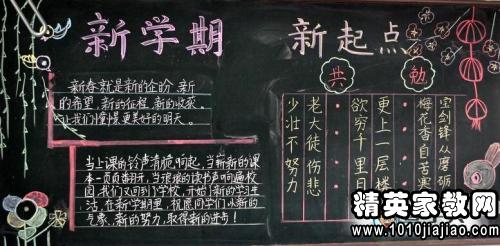 新学期 新起点
新春就是新的企盼、新
的希望、新的征程、新的收获。
让我们憧憬更美好的明天。
当上课的铃声清脆响起,当崭新的课
本一页页翻开,当琅琅的读书声响遍校
园,我们又回到了学校,开始了新的学习生
活,在新学期里,祝愿同学们以新的
气象、新的努力,取得新的进步!
共勉
宝剑锋从磨砺
梅花香自苦寒
更上一层楼
欲穷千里目
老大徒伤悲
少壮不努力
精英家教网
www.1010jiajiao.com